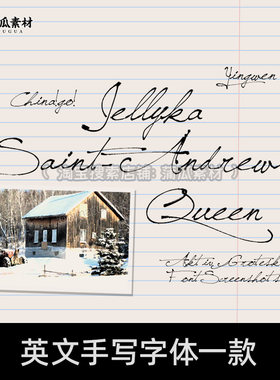 瓜素材
GUGUA
Yingwen
Chindgo!
Jellyka
Saint-c Andrew
淘宝搜索店铺：蓏瓜素材
Queen
Akt in Grotesk
Font Screenshots
英文手写字体一款